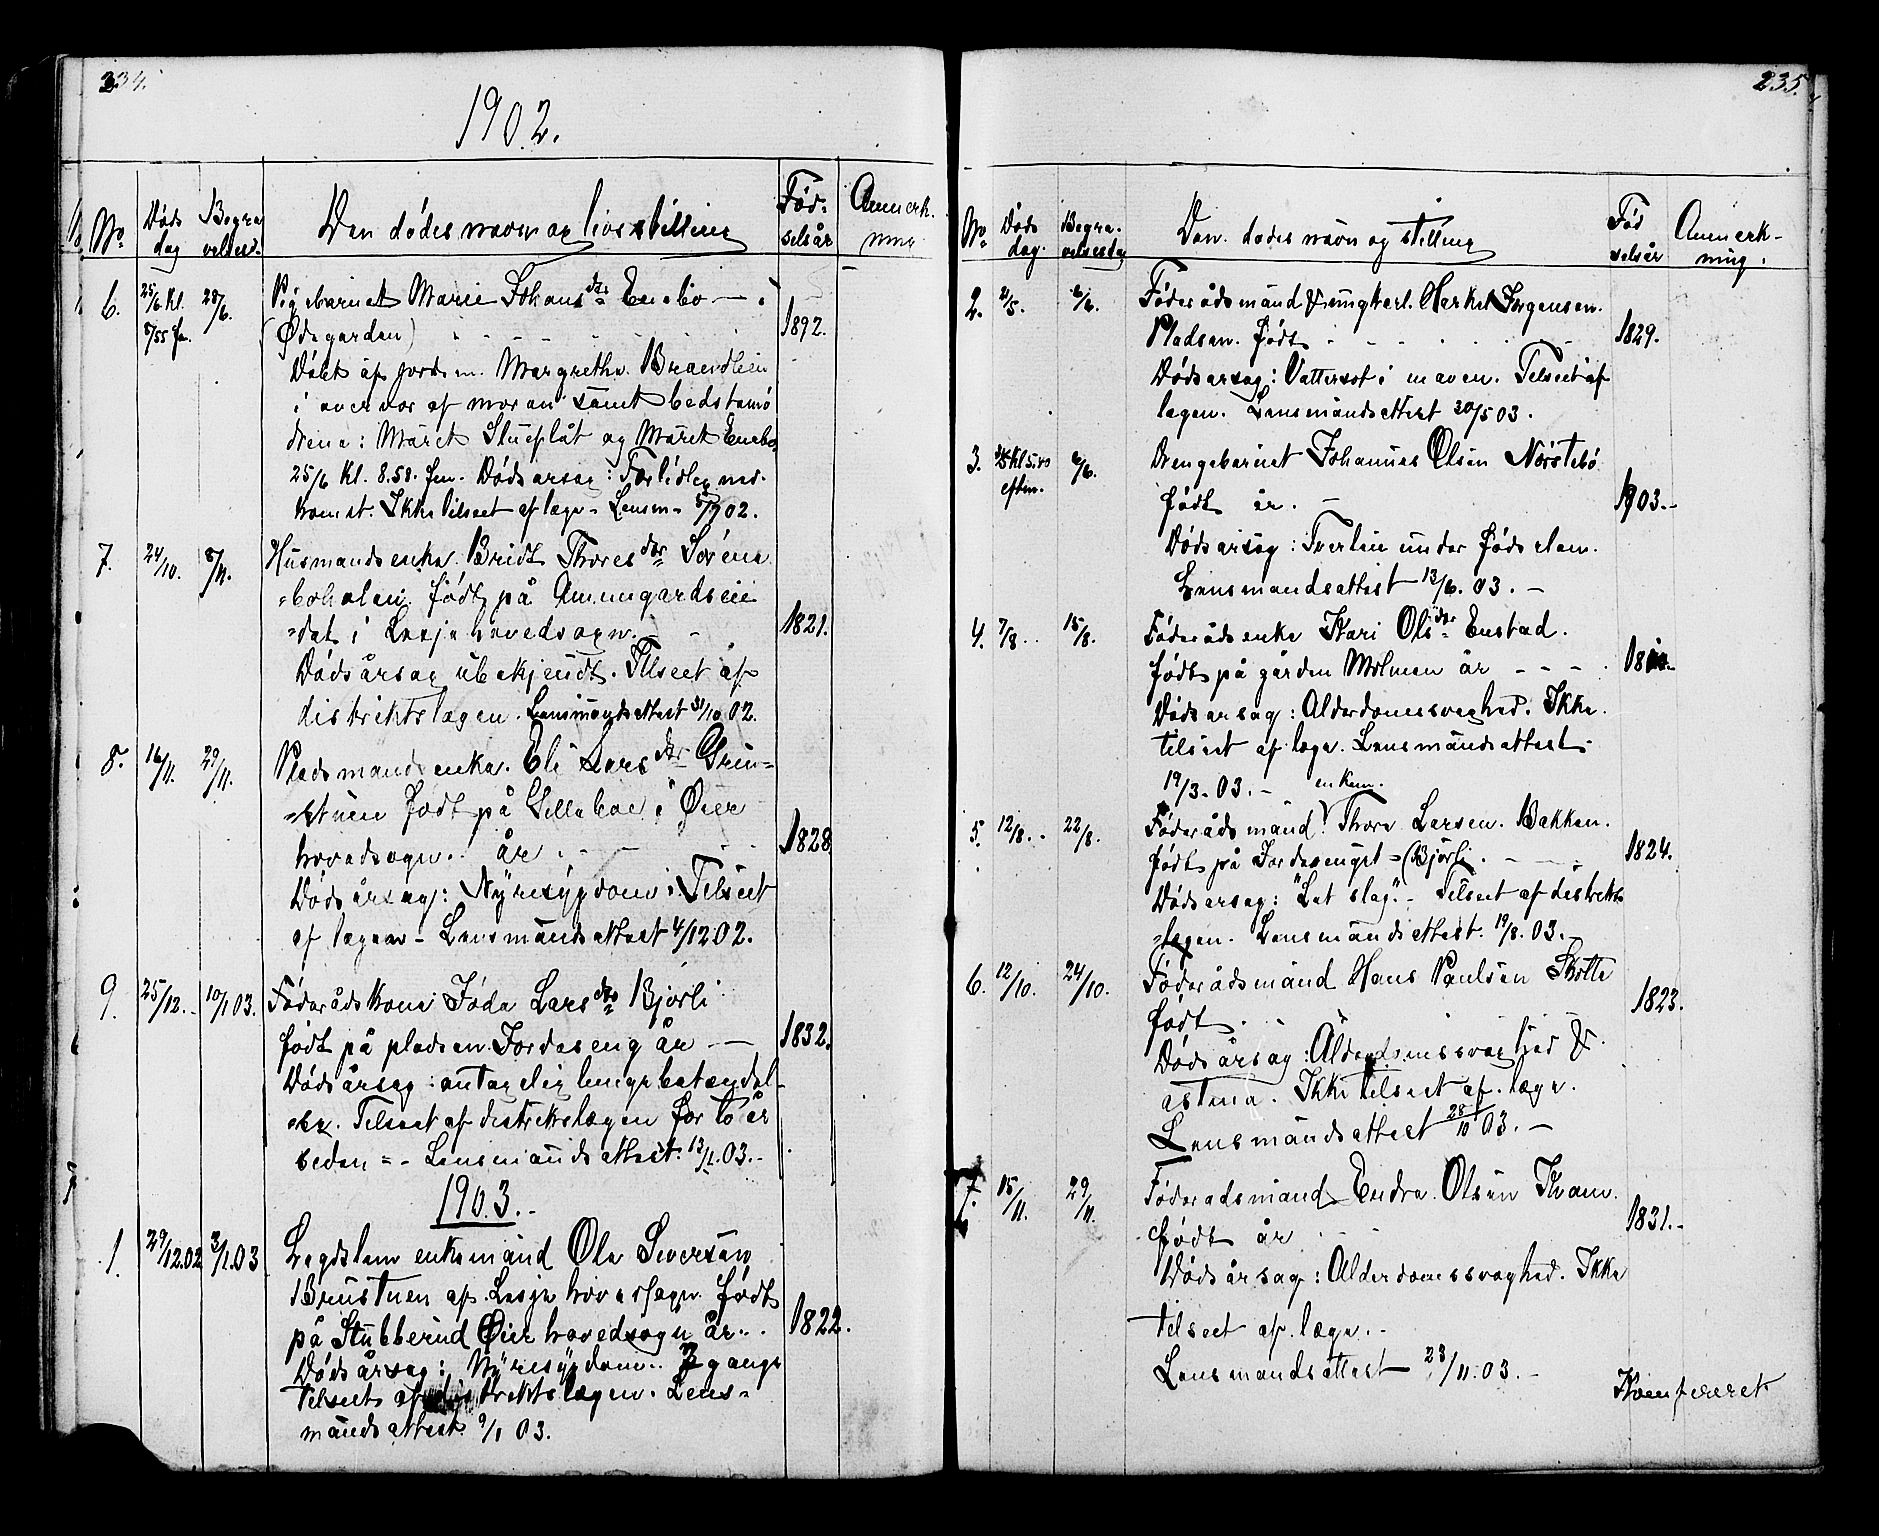 234.
1902.
No. Døds dag Begravelsesd. Den dødes navn og livsstilling Fødselsår Anmerkning
6. 25/6 Kl. 8/55 fm. 28/6. Pigebarnet Marie Johansdtr Enebo — i
(Ødegarden) 1892.
Døbt af jordm. Margrethe Brændlien
i overvær af moren samt bedstemø
drene: Marit Stueflåt og Marit Enebo
25/6 Kl. 8.58. fm. Dødsårsag: For tidlig ned-
komst. Ikke tilseet af læge - Lensm - 5/7 02.
7. 24/10. 8/11. Husmandsenke. Bridt Thoresdtr Sørens
=boholen. født på Aumgardseie
=det i Lesje hovedsogn. - 1821.
Dødsårsag ubekjendt. Tilseet af
distriktslægen. Lensmandsattest 31/10 02.
8. 16/11. 29/11. Pladsmandsenke. Eli Larsdtr Grin=
=stuen født på Lilleboe i Øier
hovedsogn. år - 1828
Dødsårsag: Nyresygdom. Tilseet
af lægen - Lensmandsattest 4/12 02.
9. 25/12. - 10/1 03. Føderådskone Jøda Larsdtr Bjorli
født på pladsen Jordaseng år — 1832.
Dødsårsag: antagelig lungebetændel
=se. Tilseet af distriktslægen for to år
siden = - Lensmandsattest. 13/1. 03. -
1903. -
1. 29/12.02 3/1.03 Legdslem enkemand Ole Siversen
Brustuen af Lesje hovedsogn. født
på Stubberud Øier hovedsogn år. . 1822.
Dødsårsag: Nyresygdom. . 3 gange
tilseet af distriktslægen. Lens=
mandsattest 9/1 03.
235.
No. Døds dag. Begravelsesdag Den dødes navn og stilling Fødselsår Anmerkning.
2. 2/5. 6/6. Føderådsmand & ungkarl. Herket Jørgensen.
Pladsen. født - - 1829.
Dødsarsag: Vattersot i maven. Tilseet af
lægen. Lensmandsattest 20/5 03.
3. Kl 5.40 eftm. 6/6. Drengebarnet Johannes Olsen Nørstebø
født år. - 1903. -
Dødsarsag: Tverlein under fødselen.
Lensmandsattest 13/6. 03. -
4. 7/8. . 15/8. Føderådsenke Kari Olsdtr Enstad.
født på gården Mølmen år - - -
Dødsarsag: Alderdomssvaghed. Ikke
tilseet af læge. Lensmandsattest
19/3. 03. -
5. 12/8. . 22/8. Føderådsmand, enkem. Thore Larsen. Bakken.
født på Jordasenget = (Bjorli. - 1824.
Dødsarsag: "Let slag". - Tilseet af distrikts
=lægen. Lensmandsattest. 19/8. 03. -
6. 12/10. 24/10. Føderådsmand Hans Paulsen Skotte
født. 1823.
Dødsårsag: Alderdomssvaghed &
astma. Ikke tilseet af læge.
Lensmandsattest 28/10 03. -
7. 15/11. 29/11. Føderadsmand Endre Olsen Tvam.
født år 1831. -
Dødsårsag: Alderdomssvaghed. Ikke
tilseet af læge. -
Lensmandsattest 23/11. 03. -
Konfereret